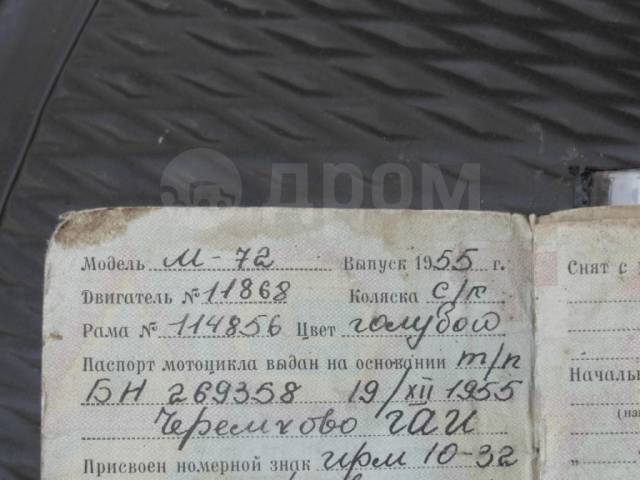 ДРОМ
Модель М-72 Выпуск 1955 г.
Двигатель № 11868 Коляска с/п
Рама № 114856 Цвет голубой
Паспорт мотоцикла выдан на основании т/п
БН 269358 19/XII 1955
Черемхово ГАИ
Присвоен номерной знак ирм 10-32
Снят с
Началь